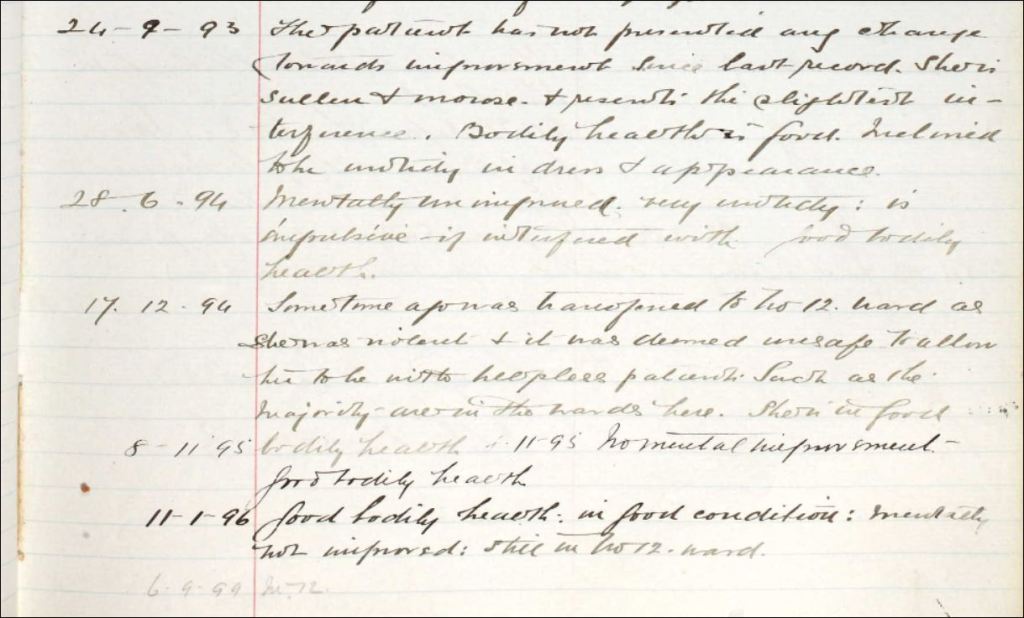 24-9-93 The patient has not presented any change
towards improvement since last record. She is
sullen & morose. & resents the slightest in-
terference. Bodily health is good. Inclined
to be untidy in dress & appearance.
28.6.94 Mentally unimproved. very untidy: is
impulsive if interfered with good bodily
health.
17.12.94 Sometime ago was transferred to No 12. ward as
she was violent & it was deemed unsafe to allow
her to be with helpless patients such as the
majority are in the wards here. She is in good
8-11-95 bodily health 11-95 No mental improvement-
good bodily health
11-1-96 Good bodily health: in good condition: mentally
not improved: still in No 12. ward.
6-9-99